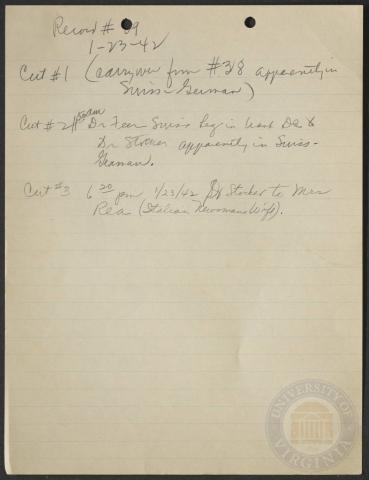 Record # 39
1-23-42
Cut #1 (carryover from #38 apparently in
Swiss-German)
Cut #2 11 50 am Dr Feer Swiss Leg in Wash DC &
Dr Stocker apparently in Swiss-
German.
Cut #3 6 20 pm 1/23/42 Stocker to Mrs
Rea (Italian Newsmans Wife).
UNIVERSITY OF VIRGINIA